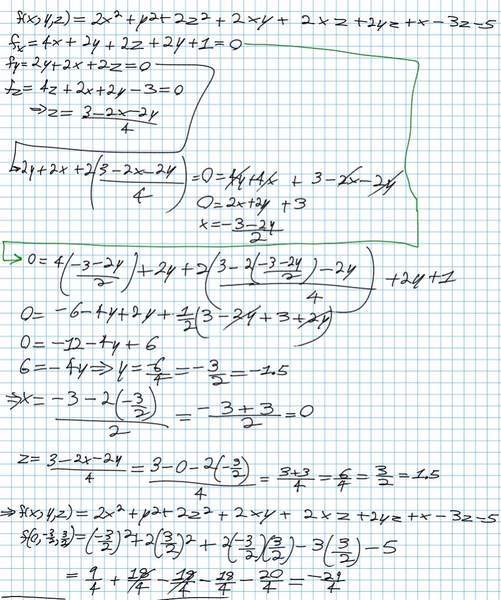 f(x,y,z) = 2x² + y² + 2z² + 2xy + 2xz + 2yz + x - 3z - 5
fx = 4x + 2y + 2z + 2y + 1 = 0
fy = 2y + 2x + 2z = 0
fz = 4z + 2x + 2y - 3 = 0
⇒ z = (3 - 2x - 2y)/4
↳ 2y + 2x + 2((3 - 2x - 2y)/4) = 0 = 4y + 4x + 3 - 2x - 2y
0 = 2x + 2y + 3
x = (-3 - 2y)/2
→ 0 = 4((-3 - 2y)/2) + 2y + 2((3 - 2((-3 - 2y)/2) - 2y)/4) + 2y + 1
0 = -6 - 4y + 2y + 1/2(3 - 2y + 3 + 2y)
0 = -12 - 4y + 6
6 = -4y ⇒ y = 6/4 = -3/2 = -1.5
⇒ x = (-3 - 2(-3/2))/2 = (-3 + 3)/2 = 0
z = (3 - 2x - 2y)/4 = (3 - 0 - 2(-3/2))/4 = (3 + 3)/4 = 6/4 = 3/2 = 1.5
⇒ f(x,y,z) = 2x² + y² + 2z² + 2xy + 2xz + 2yz + x - 3z - 5
f(0, -3/2, 3/2) = (-3/2)² + 2(3/2)² + 2(-3/2)(3/2) - 3(3/2) - 5
= 9/4 + 18/4 - 18/4 - 18/4 - 20/4 = -29/4